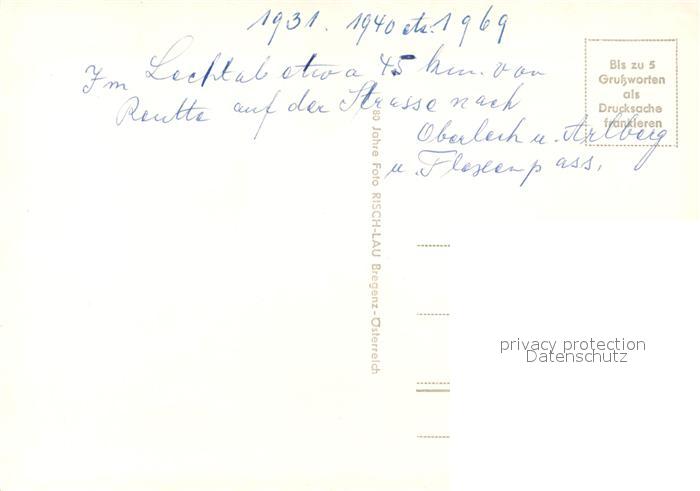 1931. 1940 etc. 1969
Im Lechtal etwa 45 km. von
Reutte auf der Strasse nach
Oberlech u. Arlberg
u. Flexenpass.
Bis zu 5
Grußworten
als
Drucksache
frankieren
80 Jahre Foto RISCH-LAU Bregenz-Österreich
privacy protection
Datenschutz